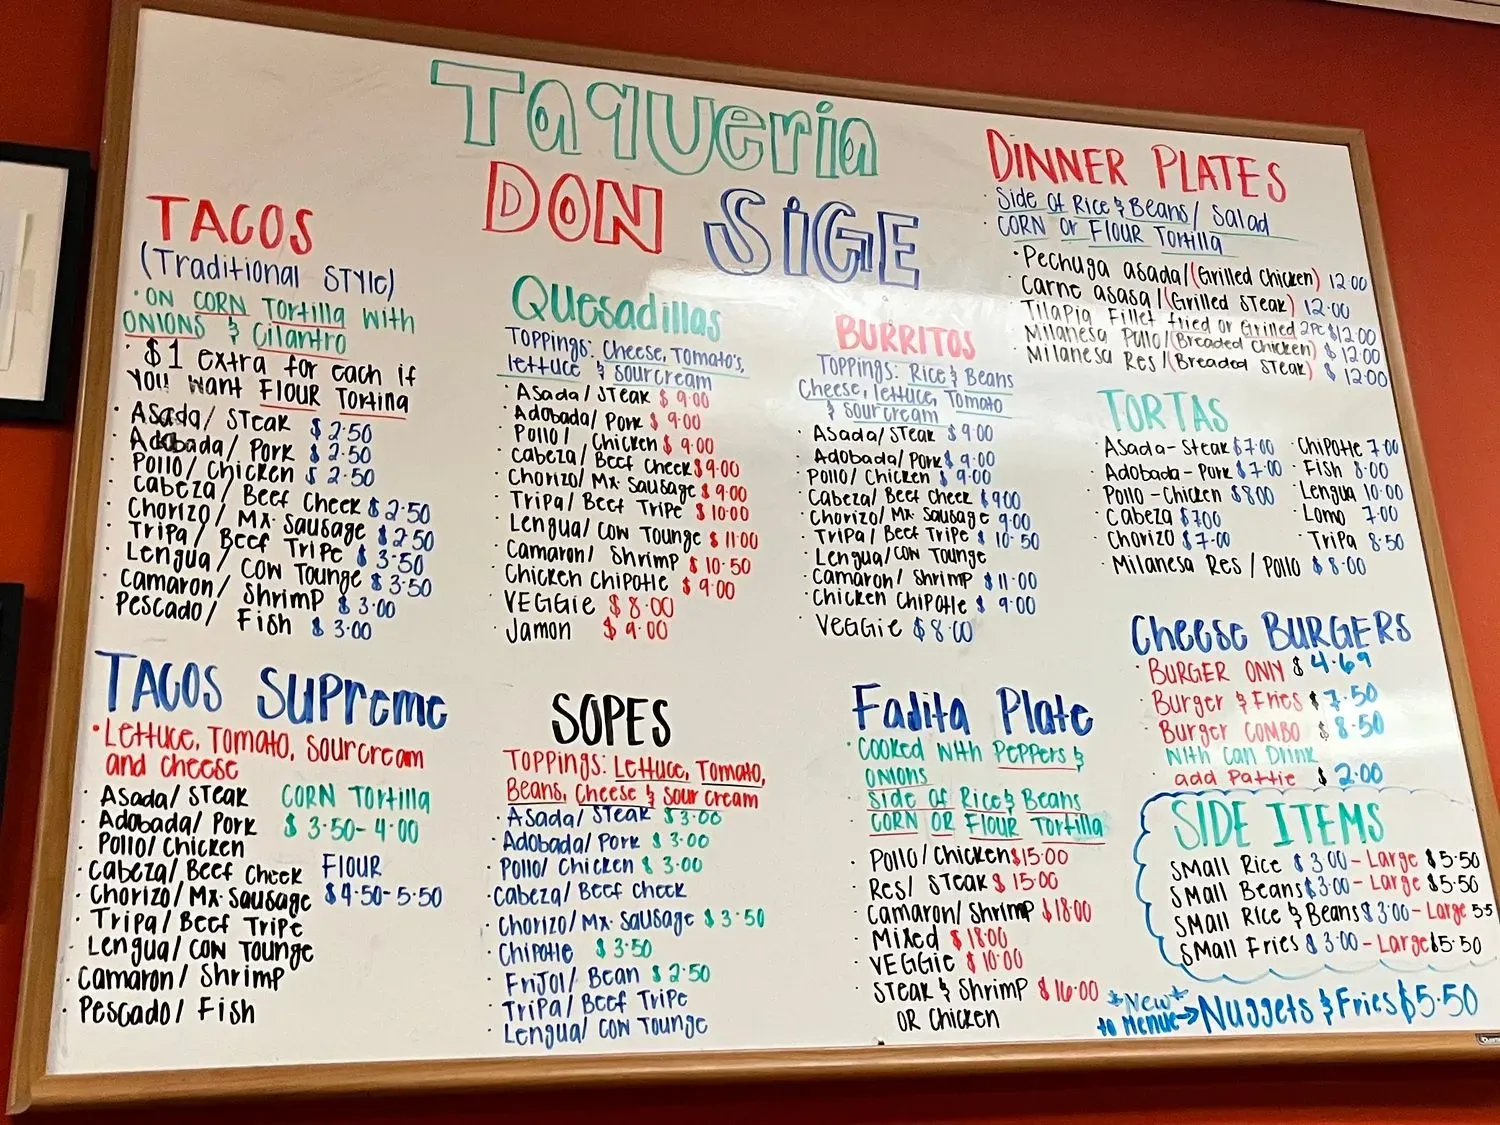 Taqueria
DON SiGE
TACOS
(Traditional STYLE)
· ON CORN Tortilla with
ONIONS & Cilantro
· $1 extra for each if
YOU WANT FLOUR Tortina
· Asada/ STEAK $2.50
· Adobada/ Pork $2.50
· Pollo/ Chicken $2.50
· Cabeza/ Beef Cheek $2.50
· Chorizo/ Mx. Sausage $2.50
· Tripa/ Beef Tripe $3.50
· Lengua/ COW Tounge $3.50
· Camaron/ Shrimp $3.00
· Pescado/ Fish $3.00
TACOS SUPreme
· Lettuce, Tomato, sour cream
and cheese
· Asada/ STEAK
· Adobada/ Pork
· Pollo/ Chicken
· Cabeza/ Beef Cheek
· Chorizo/ Mx. Sausage
· Tripa/ Beef Tripe
· Lengua/ COW Tounge
· Camaron/ Shrimp
· Pescado/ Fish
CORN Tortilla
$3.50-4.00
FLOUR
$4.50-5.50
Quesadillas
Toppings: Cheese, Tomato's,
lettuce & sourcream
· Asada/ STEAK $9.00
· Adobada/ Pork $9.00
· Pollo/ Chicken $9.00
· Cabeza/ Beef Cheek $9.00
· Chorizo/ Mx. Sausage $9.00
· Tripa/ Beef Tripe $10.00
· Lengua/ COW Tounge $11.00
· Camaron/ Shrimp $10.50
· Chicken Chipotle $9.00
· VEGGie $8.00
· Jamon $9.00
SOPES
Toppings: Lettuce, Tomato,
Beans, Cheese & Sour cream
· Asada/ STEAK $3.00
· Adobada/ Pork $3.00
· Pollo/ Chicken $3.00
· Cabeza/ Beef Cheek
· Chorizo/ Mx. Sausage $3.50
· Chipotle $3.50
· Frijol/ Bean $2.50
· Tripa/ Beef Tripe
· Lengua/ COW Tounge
BURRITOS
Toppings: Rice & Beans
Cheese, lettuce, Tomato
& Sour cream
· Asada/ STEAK $9.00
· Adobada/ Pork $9.00
· Pollo/ Chicken $9.00
· Cabeza/ Beef Cheek $900
· Chorizo/ Mx. Sausage 9.00
· Tripa/ Beef Tripe $10.50
· Lengua/COW Tounge
· Camaron/ Shrimp $11.00
· Chicken Chipotle $9.00
· VEGGie $8.00
Fajita Plate
· Cooked with Peppers &
onions
· Side of Rice & Beans
· CORN OR FLOUR Tortilla
· Pollo/Chicken $15.00
· Res/ STEAK $15.00
· Camaron/ Shrimp $18.00
· Mixed $18.00
· VEGGie $10.00
· STEAK & Shrimp $16.00
OR Chicken
DINNER PLATES
· Side of Rice & Beans/ Salad
· CORN or FLOUR Tortilla
· Pechuga asada/(Grilled Chicken) 12.00
· Carne asasa/(Grilled STEAK) 12.00
· Tilapia Fillet fried or Grilled 2Pc $12.00
· Milanesa Pollo/(Breaded Chicken) $12.00
· Milanesa Res/(Breaded STEAK) $12.00
TORTAS
· Asada-Steak $7.00
· Adobada-Pork $7.00
· Pollo-Chicken $8.00
· Cabeza $7.00
· Chorizo $7.00
· Milanesa Res / Pollo $8.00
· Chipotle 7.00
· Fish 8.00
· Lengua 10.00
· Lomo 7.00
· Tripa 8.50
Cheese BURGERS
· BURGER ONLY $4.69
· Burger & Fries $7.50
· Burger COMBO $8.50
With Can Drink
· add Pattie $2.00
SIDE ITEMS
· Small Rice $3.00-Large $5.50
· Small Beans $3.00-Large $5.50
· Small Rice & Beans $3.00-Large 55
· Small Fries $3.00-Large $5.50
*New*
to Menue→ Nuggets & Fries $5.50